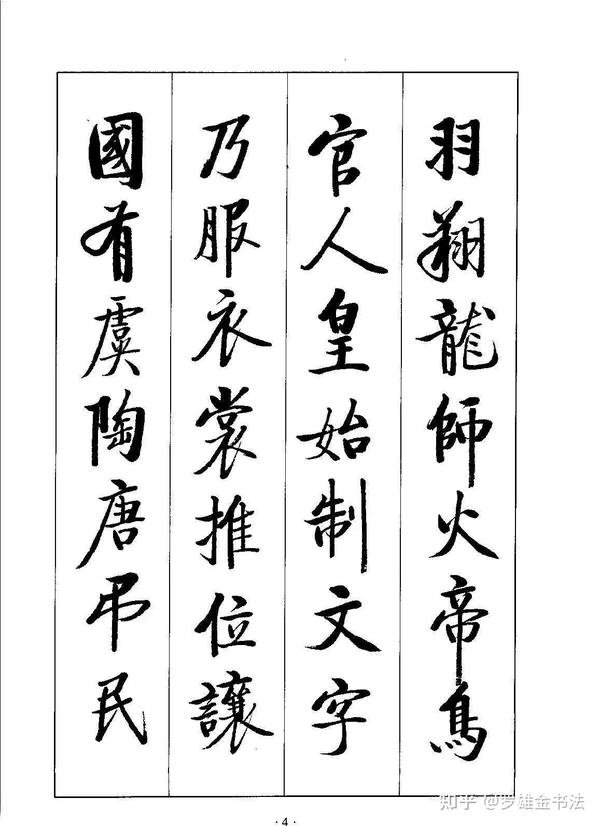 羽翔龍師火帝鳥
官人皇始制文字
乃服衣裳推位讓
國有虞陶唐弔民
·4·
知乎 @罗雄金书法